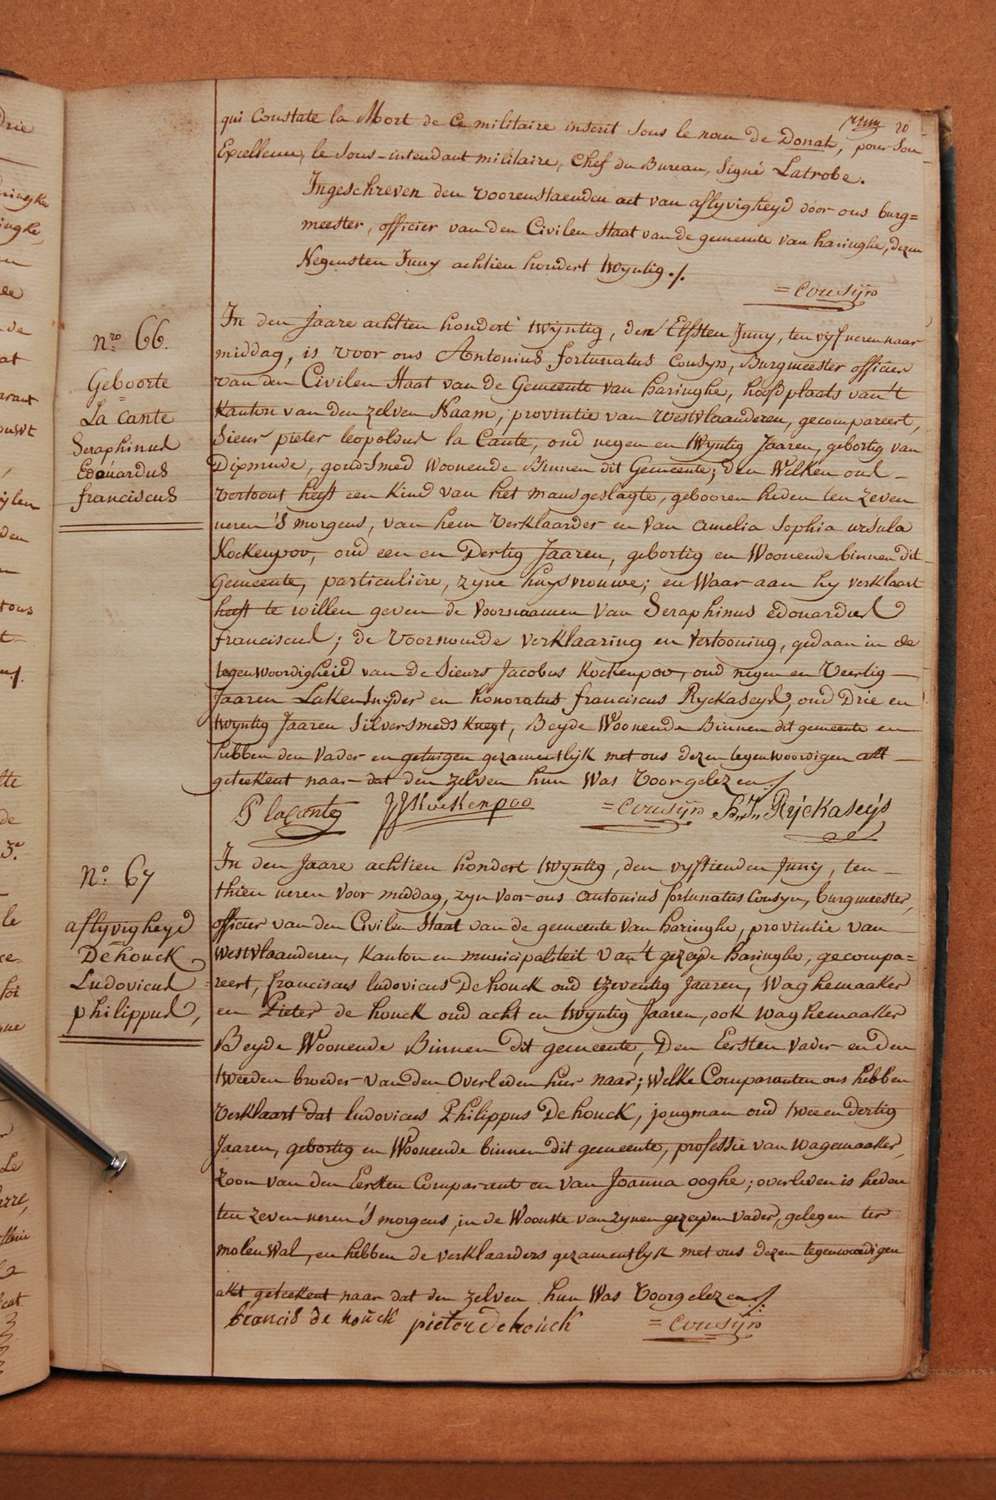 20
qui Constate la Mort de Ce militaire inscrit sous le nom de Donat, pour Son
Excellence, le sous-intendant militaire, Chef du Bureau, signé Latrobe.
Ingeschreven den voorenstaenden act van aflyvigheyd door ons burg=
meester, officier van den Civilen Staat van de gemeente van haringhe, dezen
Negensten Juny achtien hondert twyntig ./.
= Cousijn
nro 66.
Geboorte
La Cante
Seraphinus
Edouardus
franciscus
In den Jaare achtien hondert twyntig, den Elfsten Juny, ten vyf ueren naar
middag, is voor ons Antonius fortunatus Cousyn, Burgmeester officier
van den Civilen Staat van de Gemeente van haringhe, hoofdplaats van't
Kanton van den zelven Naam, provintie van westvlaanderen, gecompareert,
Sieur pieter leopoldus la Cante, oud negen en twyntig Jaaren, gebortig van
Dixmude, goudsmed woonende Binnen dit Gemeente; den Welken ons
vertoont heeft een kind van het mansgeslagte, gebooren heden ten zeven
ueren 's morgens, van hem Verklaarder en van amelia Sophia ursula
Kockenpoo, oud een en Dertig Jaaren, gebortig en Woonende binnen dit
Gemeente, particulière, zyne huysvrouwe; en Waar aan hy verklaart
heeft te willen geven de voornaamen van Seraphinus edouardus
franciscus; de voornoemde verklaaring en vertooning, gedaan in de
tegenwoordigheid van de Sieurs Jacobus Kockenpoo, oud negen en Veertig
Jaaren Lakensnyder en honoratus franciscus Ryckaseys, oud Drie en
twyntig Jaaren silversmeds knegt, Beyde Woonende Binnen dit gemeente en
hebben den vader en getuigen gezamentlyk met ons dezen tegenwoordigen akt
geteekent naar dat den zelven hun Was voorgelezen ./.
P lacante JJKockenpoo = Cousijn h: f: Ryckaseys
No: 67
aflyvigheyd
De houck
Ludovicus
philippus,
In den Jaare achtien hondert twyntig, den vyftienden Juny, ten
thien ueren voor middag, zyn voor ons antonius fortunatus Cousyn, burgmeester,
officier van den Civilen Staat van de gemeente van haringhe, provintie van
westvlaanderen, Kanton en municipaliteit van't gezeyde haringhe, gecompa=
reert, franciscus ludovicus De houck oud tzeventig Jaaren, Waghemaaker
en Pieter de houck oud acht en twyntig Jaaren, ook waghemaaker
Beyde Woonende Binnen dit gemeente, Den Eersten vader en den
tweeden broeder van den Overleden hier naar; Welke Comparanten ons hebben
verklaart dat ludovicus Philippus De houck, jongman oud twee en dertig
Jaaren, gebortig en Woonende binnen dit gemeente, professie van wagemaaker,
zoon van den Eersten Comparant en van Joanna ooghe; overleden is heden
ten zeven ueren 's morgens, in de Woonste van zynen gezeyden vader, gelegen ter
molen wal, en hebben de verklaarders gezamentlyk met ons dezen tegenwoordigen
akt geteekent naar dat den zelven hun Was voorgelezen ./.
francis de houck pieter Dehouck = Cousijn